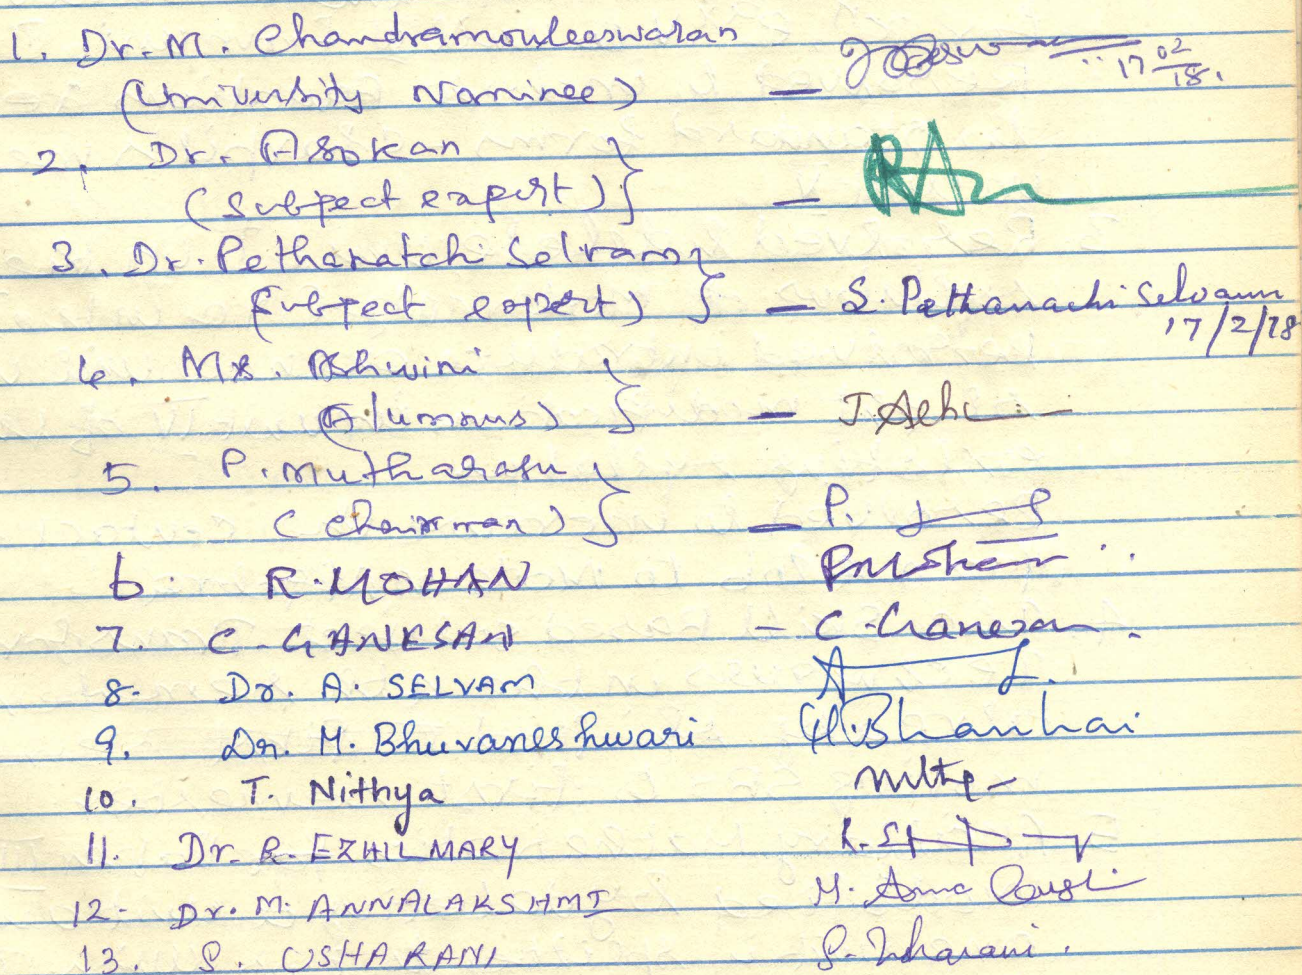 1. Dr. M. Chandramouleeswaran
17 02/18.
(University Nominee) —
2. Dr. Asokan
(Subject expert) } — RA
3. Dr. Pethanatchi Selvam
(Subject expert) } — S. Pethanachi Selvam
17/2/18
4. Ms. Ashwini
(Alumnus) } —
5. P. Mutharasu
(Chairman) } — P.
6. R. MOHAN
7. C. GANESAN — C. Ganesan.
8. Dr. A. SELVAM
9. Dr. M. Bhuvaneshwari
10. T. Nithya
11. Dr. R. EZHILMARY
12. Dr. M. ANNALAKSHMI
13. S. USHARANI